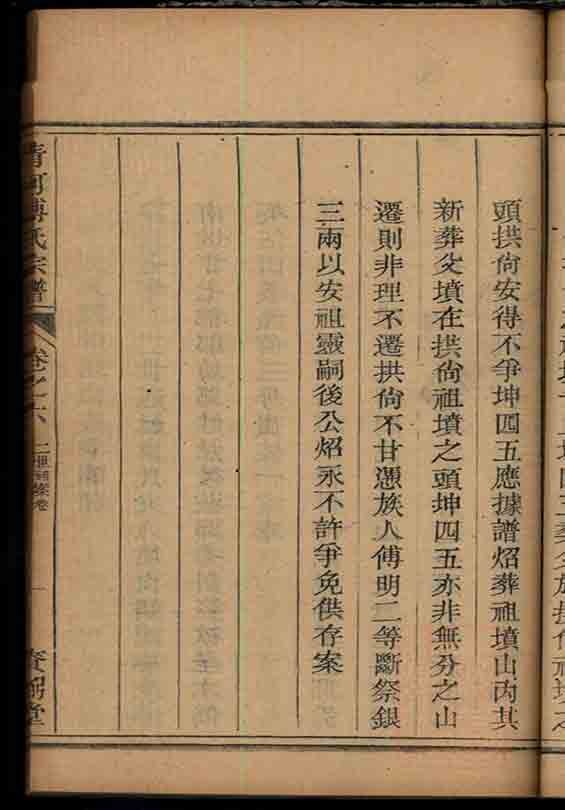 頭拱尙安得不爭坤四五應據譜炤葬祖墳山內其
新葬父墳在拱尙祖墳之頭坤四五亦非無分之山
遷則非理不遷拱尙不甘憑族人傅明二等斷祭銀
三兩以安祖靈嗣後公炤永不許爭免供存案
清河傅氏宗譜
卷之六
二世祠案卷
一
賚弼堂